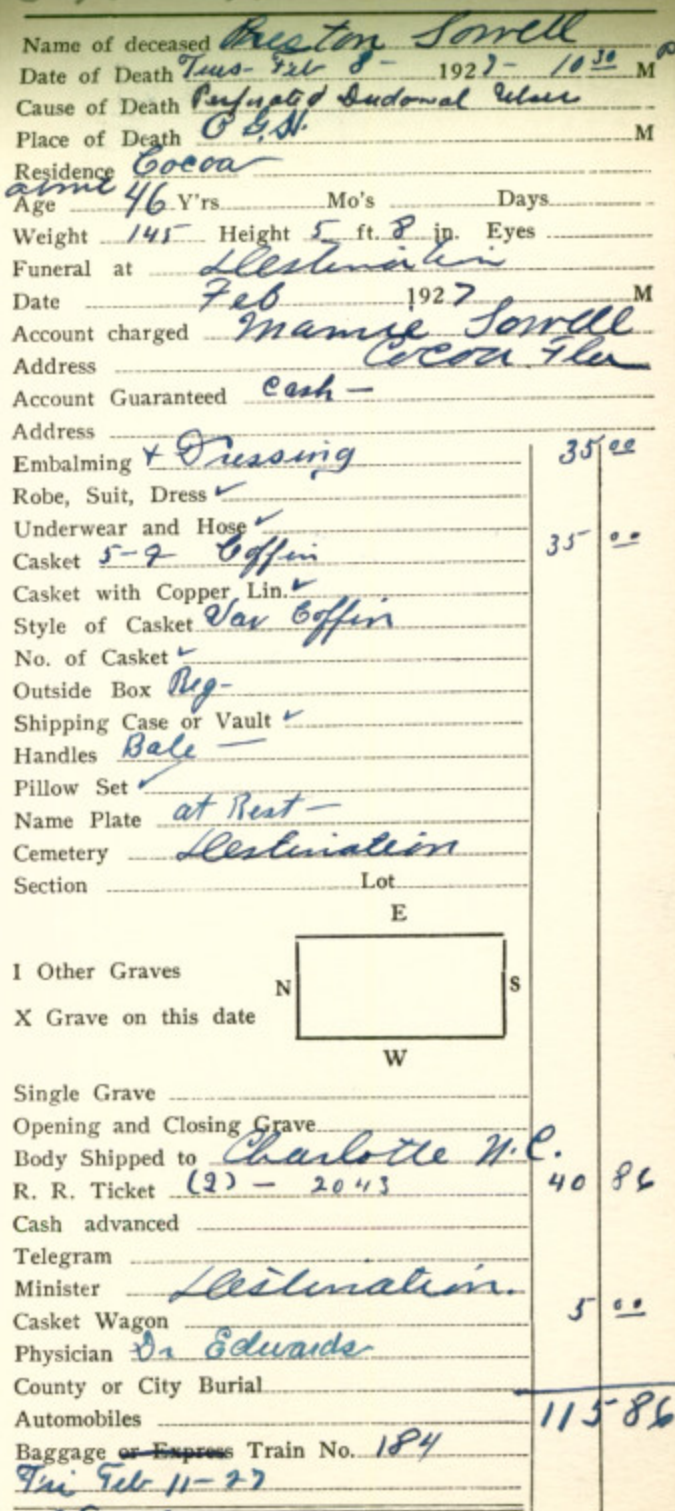 Name of deceased Preston Sowell
Date of Death Tues- Feb 8- 1927- 10 30 M P
Cause of Death Perforated Duodonal Ulser
Place of Death O G H. M
Residence Cocoa
Age about 46 Y'rs. Mo's Days
Weight 145 Height 5 ft. 8 in. Eyes
Funeral at Destination
Date Feb 1927 M
Account charged Mamie Sowell
Address Cocoa Fla
Account Guaranteed Cash —
Address
Embalming + Dressing 35 00
Robe, Suit, Dress ✓
Underwear and Hose ✓
Casket 5-9 Coffin 35 00
Casket with Copper Lin. ✓
Style of Casket Var Coffin
No. of Casket ✓
Outside Box Reg-
Shipping Case or Vault ✓
Handles Bale —
Pillow Set ✓
Name Plate at Rest —
Cemetery Destination
Section Lot
E
I Other Graves
N S
X Grave on this date
W
Single Grave
Opening and Closing Grave
Body Shipped to Charlotte N.C.
R. R. Ticket (2) - 2043 40 86
Cash advanced
Telegram
Minister Destination.
Casket Wagon 5 00
Physician Dr Edwards
County or City Burial
Automobiles 115 86
Baggage or Express Train No. 184
Fri Feb 11-27